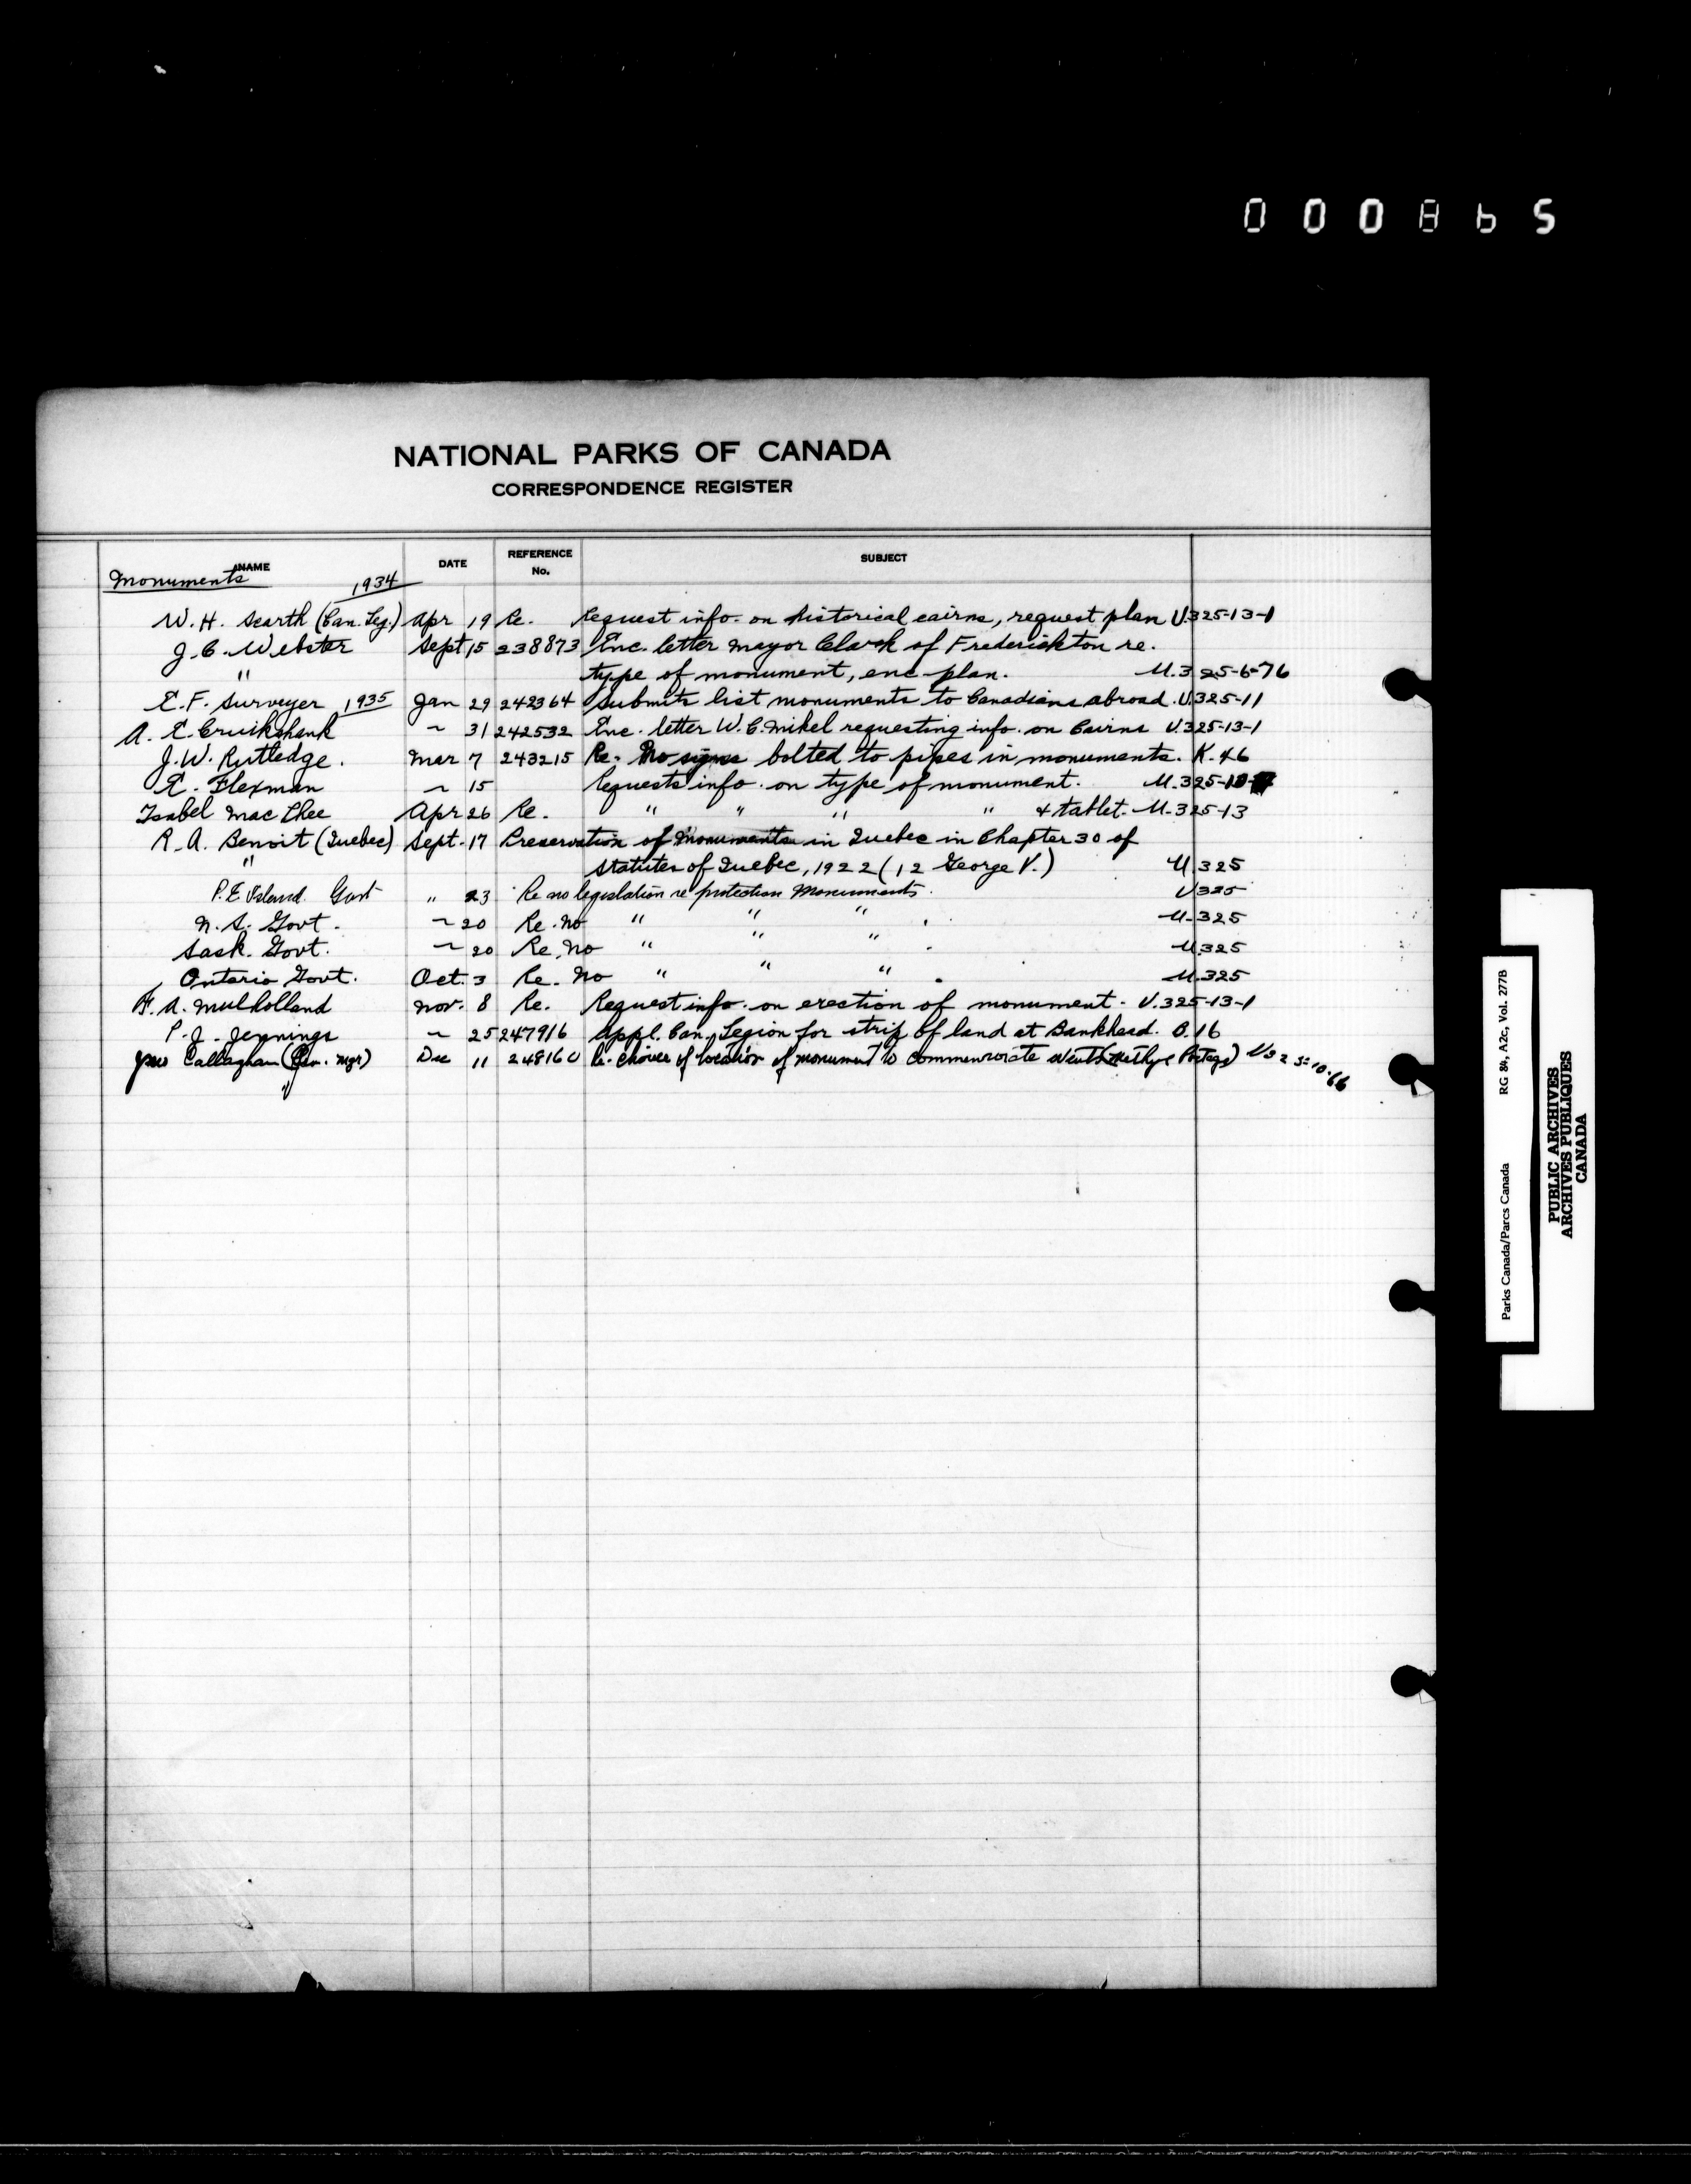 000865
NATIONAL PARKS OF CANADA
CORRESPONDENCE REGISTER
NAME DATE REFERENCE No. SUBJECT
Monuments 1934
W. H. Scarth (Can. Leg.) Apr 19 Re. Request info. on historical cairns, request plan U.325-13-1
J. C. Webster Sept 15 238873 Enc. letter Mayor Clark of Frederickton re.
" type of monument, enc plan. U.325-6-76
E. F. Surveyer 1935 Jan 29 242364 Submits list monuments to Canadians abroad. U.325-11
A. E. Cruikshank ~ 31 242532 Enc. letter W. C. Mikel requesting info. on Cairns U.325-13-1
J. W. Rutledge. Mar 7 243215 Re. No signs bolted to pipes in monuments. K.46
E. Flexman ~ 15 Requests info. on type of monument. U.325-13
Isabel Mac Phee Apr 26 Re. " " " " & tablet. U.325-13
R. A. Benoit (Quebec) Sept. 17 Preservation of Monuments in Quebec in Chapter 30 of
" Statutes of Quebec, 1922 (12 George V.) U.325
P. E Island Govt " 23 Re no legislation re protection Monuments. U325
N. S. Govt. ~ 20 Re. No " " " . U.325
Sask. Govt. ~ 20 Re. No " " " . U.325
Ontario Govt. Oct. 3 Re. No " " " . U.325
F. A. Mulholland Nov. 8 Re. Request info. on erection of monument. U.325-13-1
P. J. Jennings ~ 25 247916 Appl. Can. Legion for strip of land at Bankhead. B.16
Callaghan (Gen. Mgr) Dec 11 248160 Re. choice of location of monument to commemorate (Methye Portage) U325-10-66
"
Parks Canada/Parcs Canada RG 84, A2c, Vol. 277B
PUBLIC ARCHIVES
ARCHIVES PUBLIQUES
CANADA